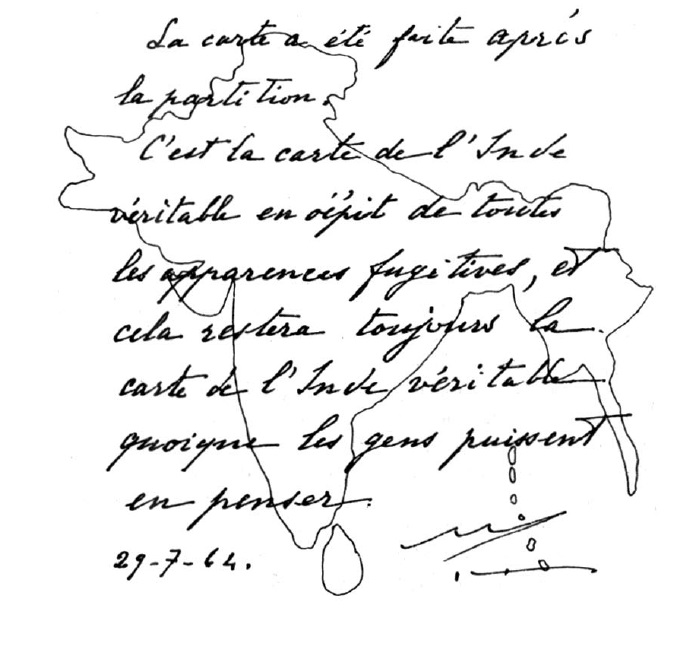 La carte a été faite après
la partition.
C'est la carte de l'Inde
véritable en dépit de toutes
les apparences fugitives, et
cela restera toujours la
carte de l'Inde véritable
quoique les gens puissent
en penser.
29-7-64.